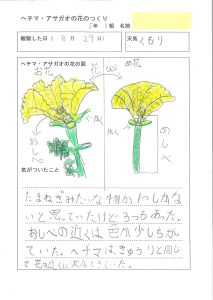 ヘチマ・アサガオの花のつくり
5年 組 名前
観察した日（ 8月 29日）
天気 くもり
ヘチマ・アサガオの花の図
お花 花 め花
おしべ
がく
めしべ
気がついたこと
たまねぎみたいな物が 1こしかな
いと思っていたけど 3つあった。
おしべの近くは色が少しちがっ
ていた。ヘチマは、きゅうりと同じ
で花の近くに